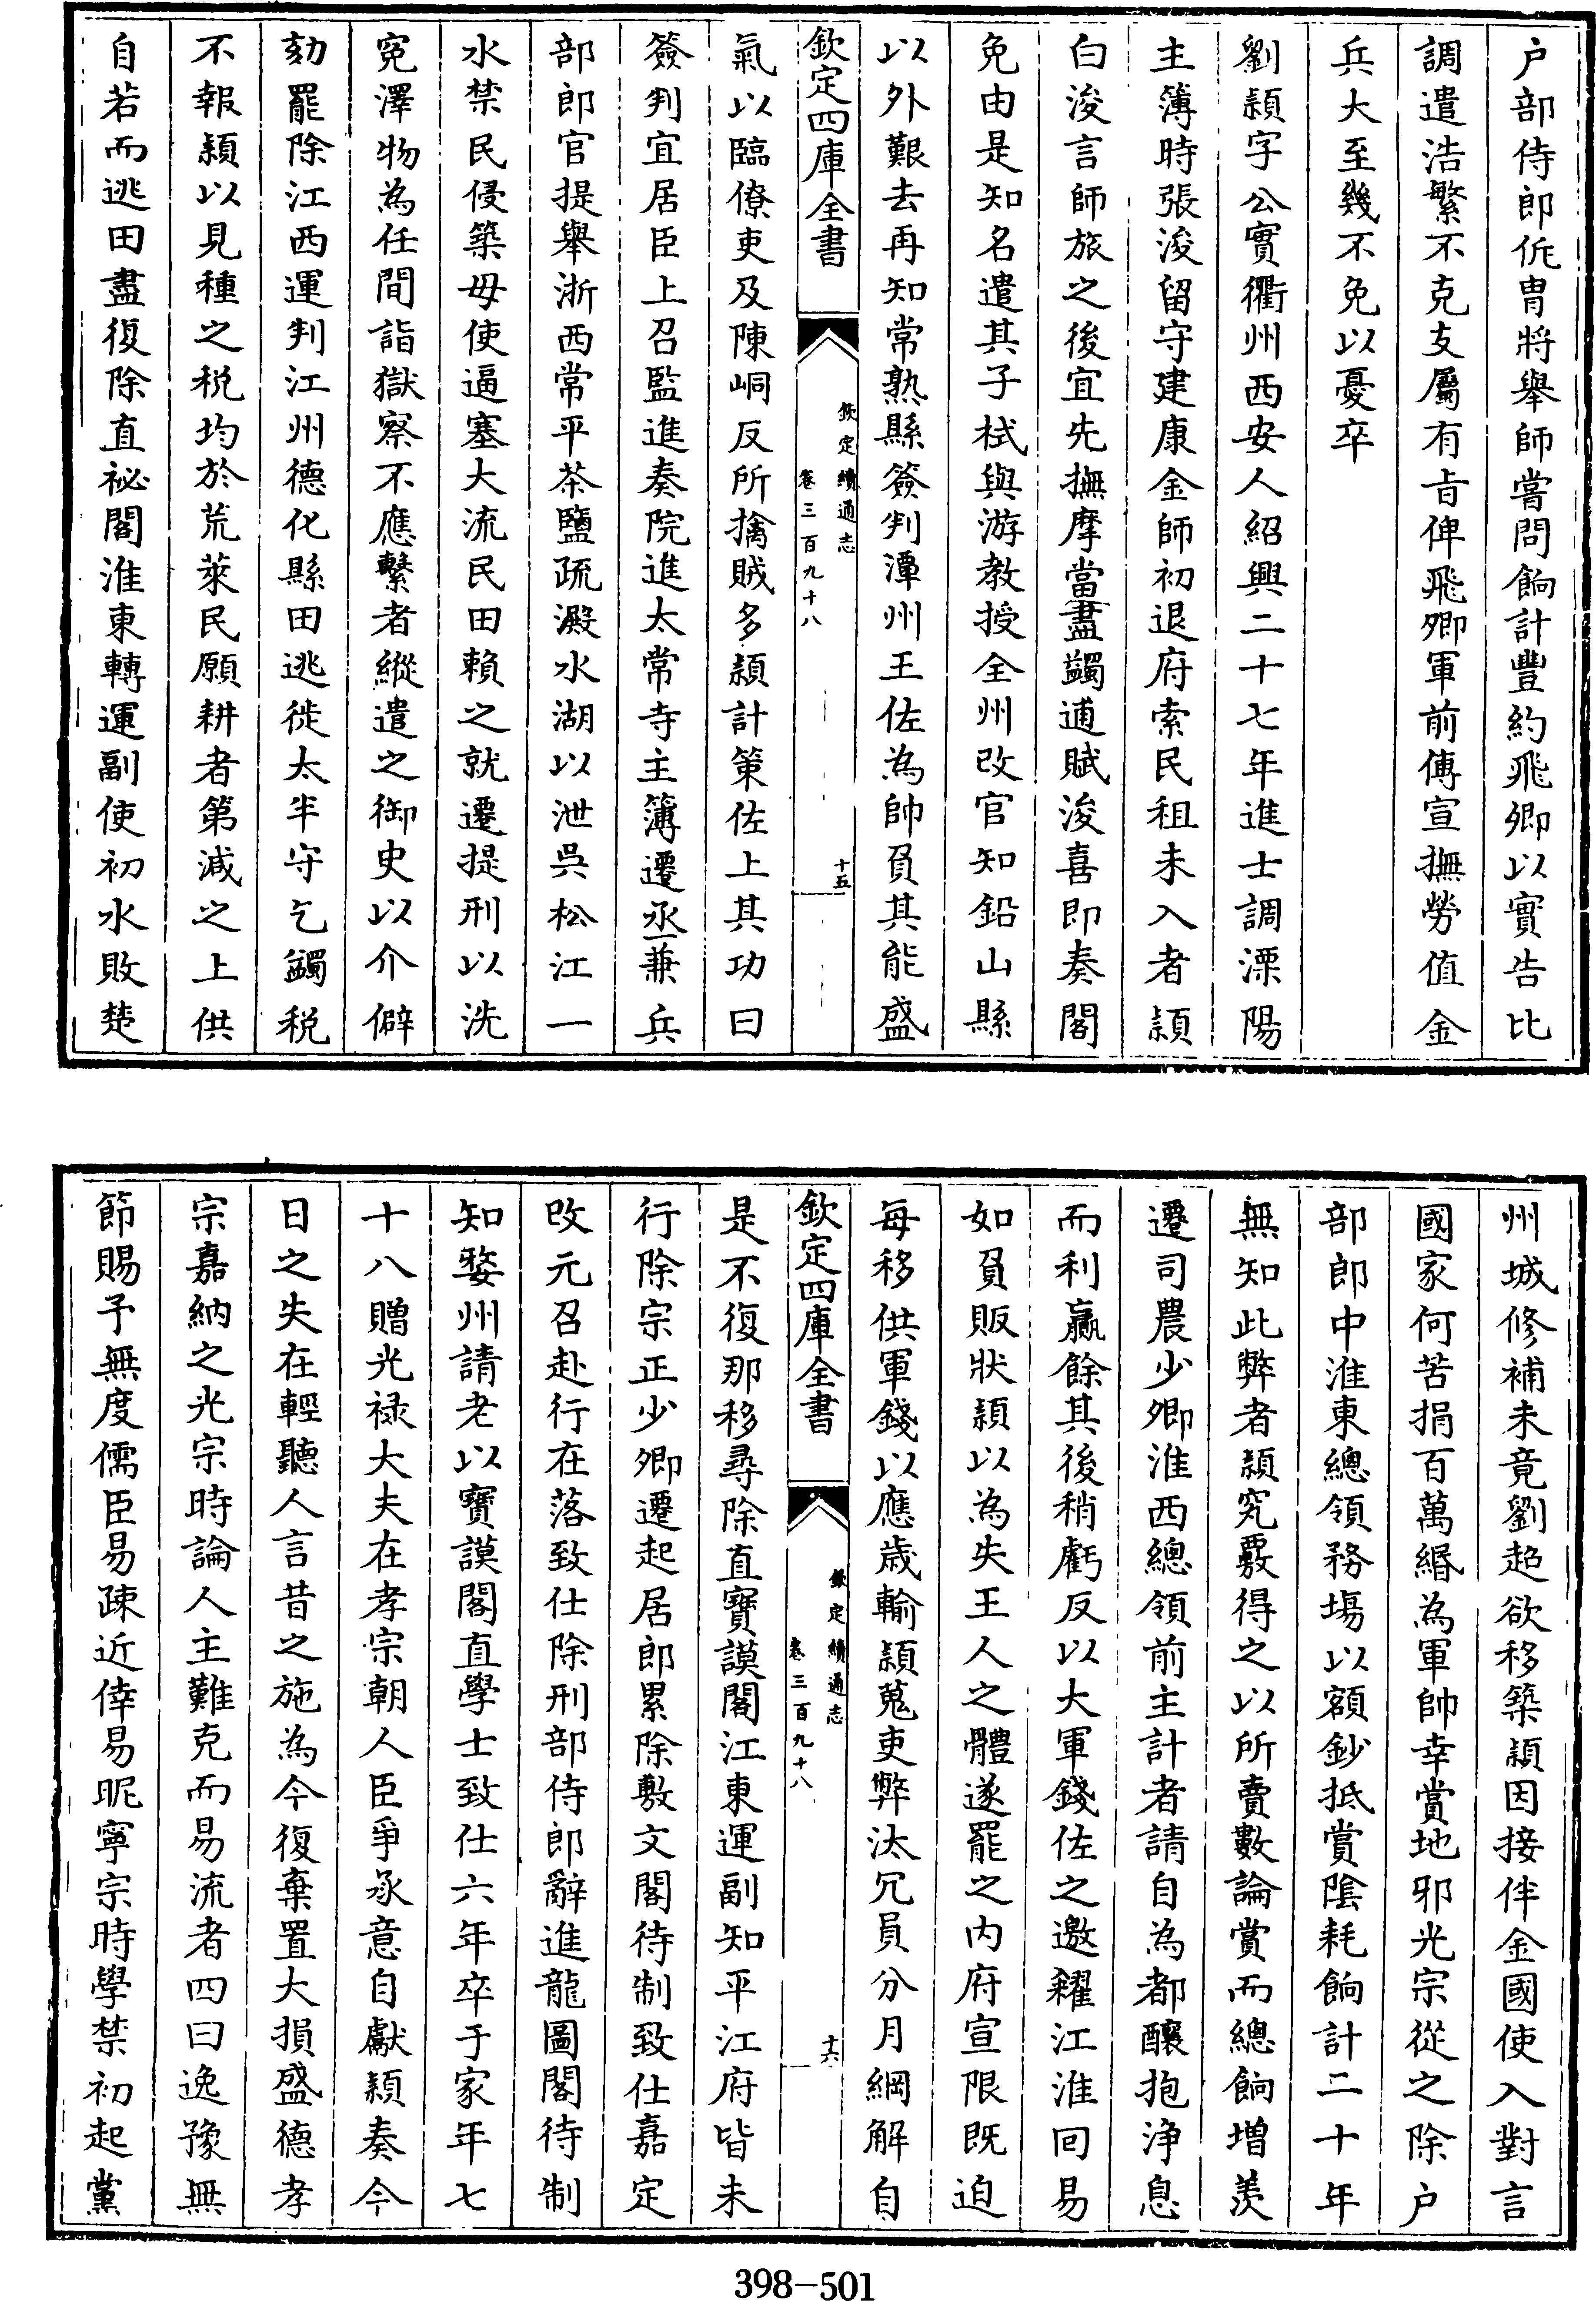 户部侍郎侂胄將舉師嘗問餉計豐約飛卿以實告比
調遣浩繁不克支屬有㫖俾飛卿軍前傅宣撫勞值金
兵大至幾不免以憂卒
劉頴字公實衢州西安人紹興二十七年進士調溧陽
主簿時張浚留守建康金師初退府索民租未入者頴
白浚言師旅之後宜先撫摩當盡蠲逋賦浚喜即奏閣
免由是知名遣其子栻與游教授全州改官知鉛山縣
以外艱去再知常熟縣簽判潭州王佐為帥負其能盛
欽定四庫全書
欽定續通志
卷三百九十八
十五
氣以臨僚吏及陳峒反所擒賊多頴計策佐上其功曰
簽判宜居臣上召監進奏院進太常寺主簿遷丞兼兵
部郎官提舉浙西常平茶鹽疏澱水湖以泄吳松江一
水禁民侵築毋使逼塞大流民田賴之就遷提刑以洗
寃澤物為任間詣獄察不應繫者縱遣之御史以介僻
劾罷除江西運判江州德化縣田逃徙太半守乞蠲税
不報頴以見種之税均於荒萊民願耕者第減之上供
自若而逃田盡復除直祕閣淮東轉運副使初水敗楚
州城修補未竟劉超欲移築頴因接伴金國使入對言
國家何苦捐百萬緡為軍帥幸賞地邪光宗從之除户
部郎中淮東總領務塲以額鈔抵賞陰耗餉計二十年
無知此弊者頴究覈得之以所賣數論賞而總餉增羨
遷司農少卿淮西總領前主計者請自為都釀抱浄息
而利贏餘其後稍虧反以大軍錢佐之邀糴江淮回易
如負販狀頴以為失王人之體遂罷之内府宣限既迫
每移供軍錢以應歲輸頴蒐吏弊汰冗員分月綱解自
欽定四庫全書
欽定續通志
卷三百九十八
十六
是不復那移尋除直寶謨閣江東運副知平江府皆未
行除宗正少卿遷起居郎累除敷文閣待制致仕嘉定
改元召赴行在落致仕除刑部侍郎辭進龍圖閣待制
知婺州請老以寶謨閣直學士致仕六年卒于家年七
十八贈光禄大夫在孝宗朝人臣爭承意自獻頴奏今
日之失在輕聽人言昔之施為今復棄置大損盛德孝
宗嘉納之光宗時論人主難克而易流者四曰逸豫無
節賜予無度儒臣易疎近倖易昵寧宗時學禁初起黨
398-501